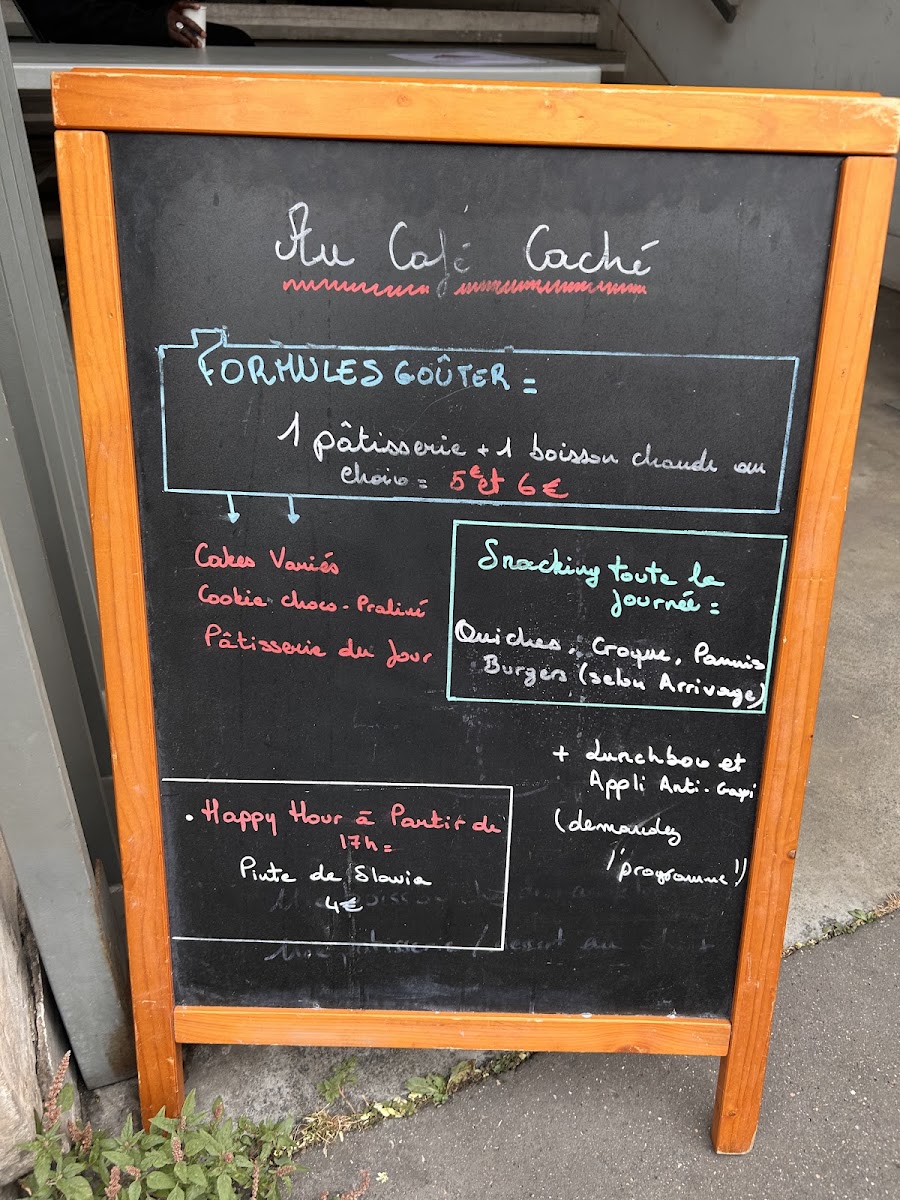 Au Café Caché
FORMULES GOÛTER =
1 pâtisserie + 1 boisson chaude au
choix = 5€ et 6€
Cakes Variés
Cookie choco-Praliné
Pâtisserie du Jour
Snacking toute la
Journée =
Quiches, Croque, Paninis
Burgers (selon Arrivage)
+ Lunchbox et
Appli Anti-Gaspi
(demandez
l'programme!)
• Happy Hour à Partir de
17h =
Pinte de Slavia
4€